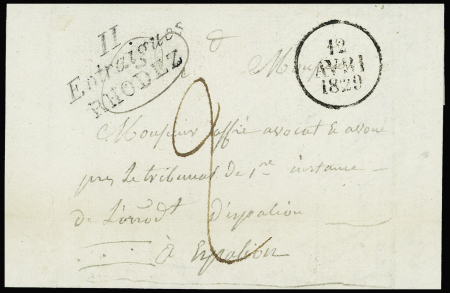 11
Entraigues
RHODEZ
12
AVRI
1829
à
Monsieur
2
Monsieur affré avocat & avoué
près le tribunal de 1re instance
de l'arrondt d'espalion
à Espalion